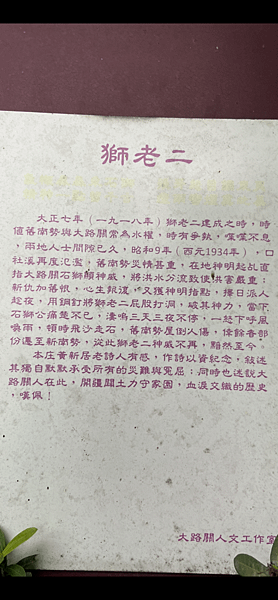 獅老二
大正七年（一九一八年）獅老二達成之時，時
值舊南勢與大路關常為水權，時有爭執，喋喋不息
，兩地人士間隙已久，昭和9年（西元1934年），口
社溪再度氾濫，舊南勢災情甚重，在地神明起乩直
指大路關石獅顯神威，將洪水分流致使洪害嚴重；
新仇加舊恨，心生報復，又獲神明指點，擇日派人
趁夜，用鋼釘將獅老二屁股打洞，破其神力，當下
石獅公痛楚不已，淒鳴三天三夜不停，一怒下呼風
喚雨，頓時飛沙走石，舊南勢屋倒人傷，倖餘者部
份遷至新南勢，從此獅老二神威不再，黯然至今。
本庄黃新居老詩人有感，作詩以資紀念，敍述
其獨自默默承受所有的災難與冤屈；同時也述說大
路關人在此，開疆闢土力守家園，血淚交織的歷史
，嘆佩！
大路關人文工作室